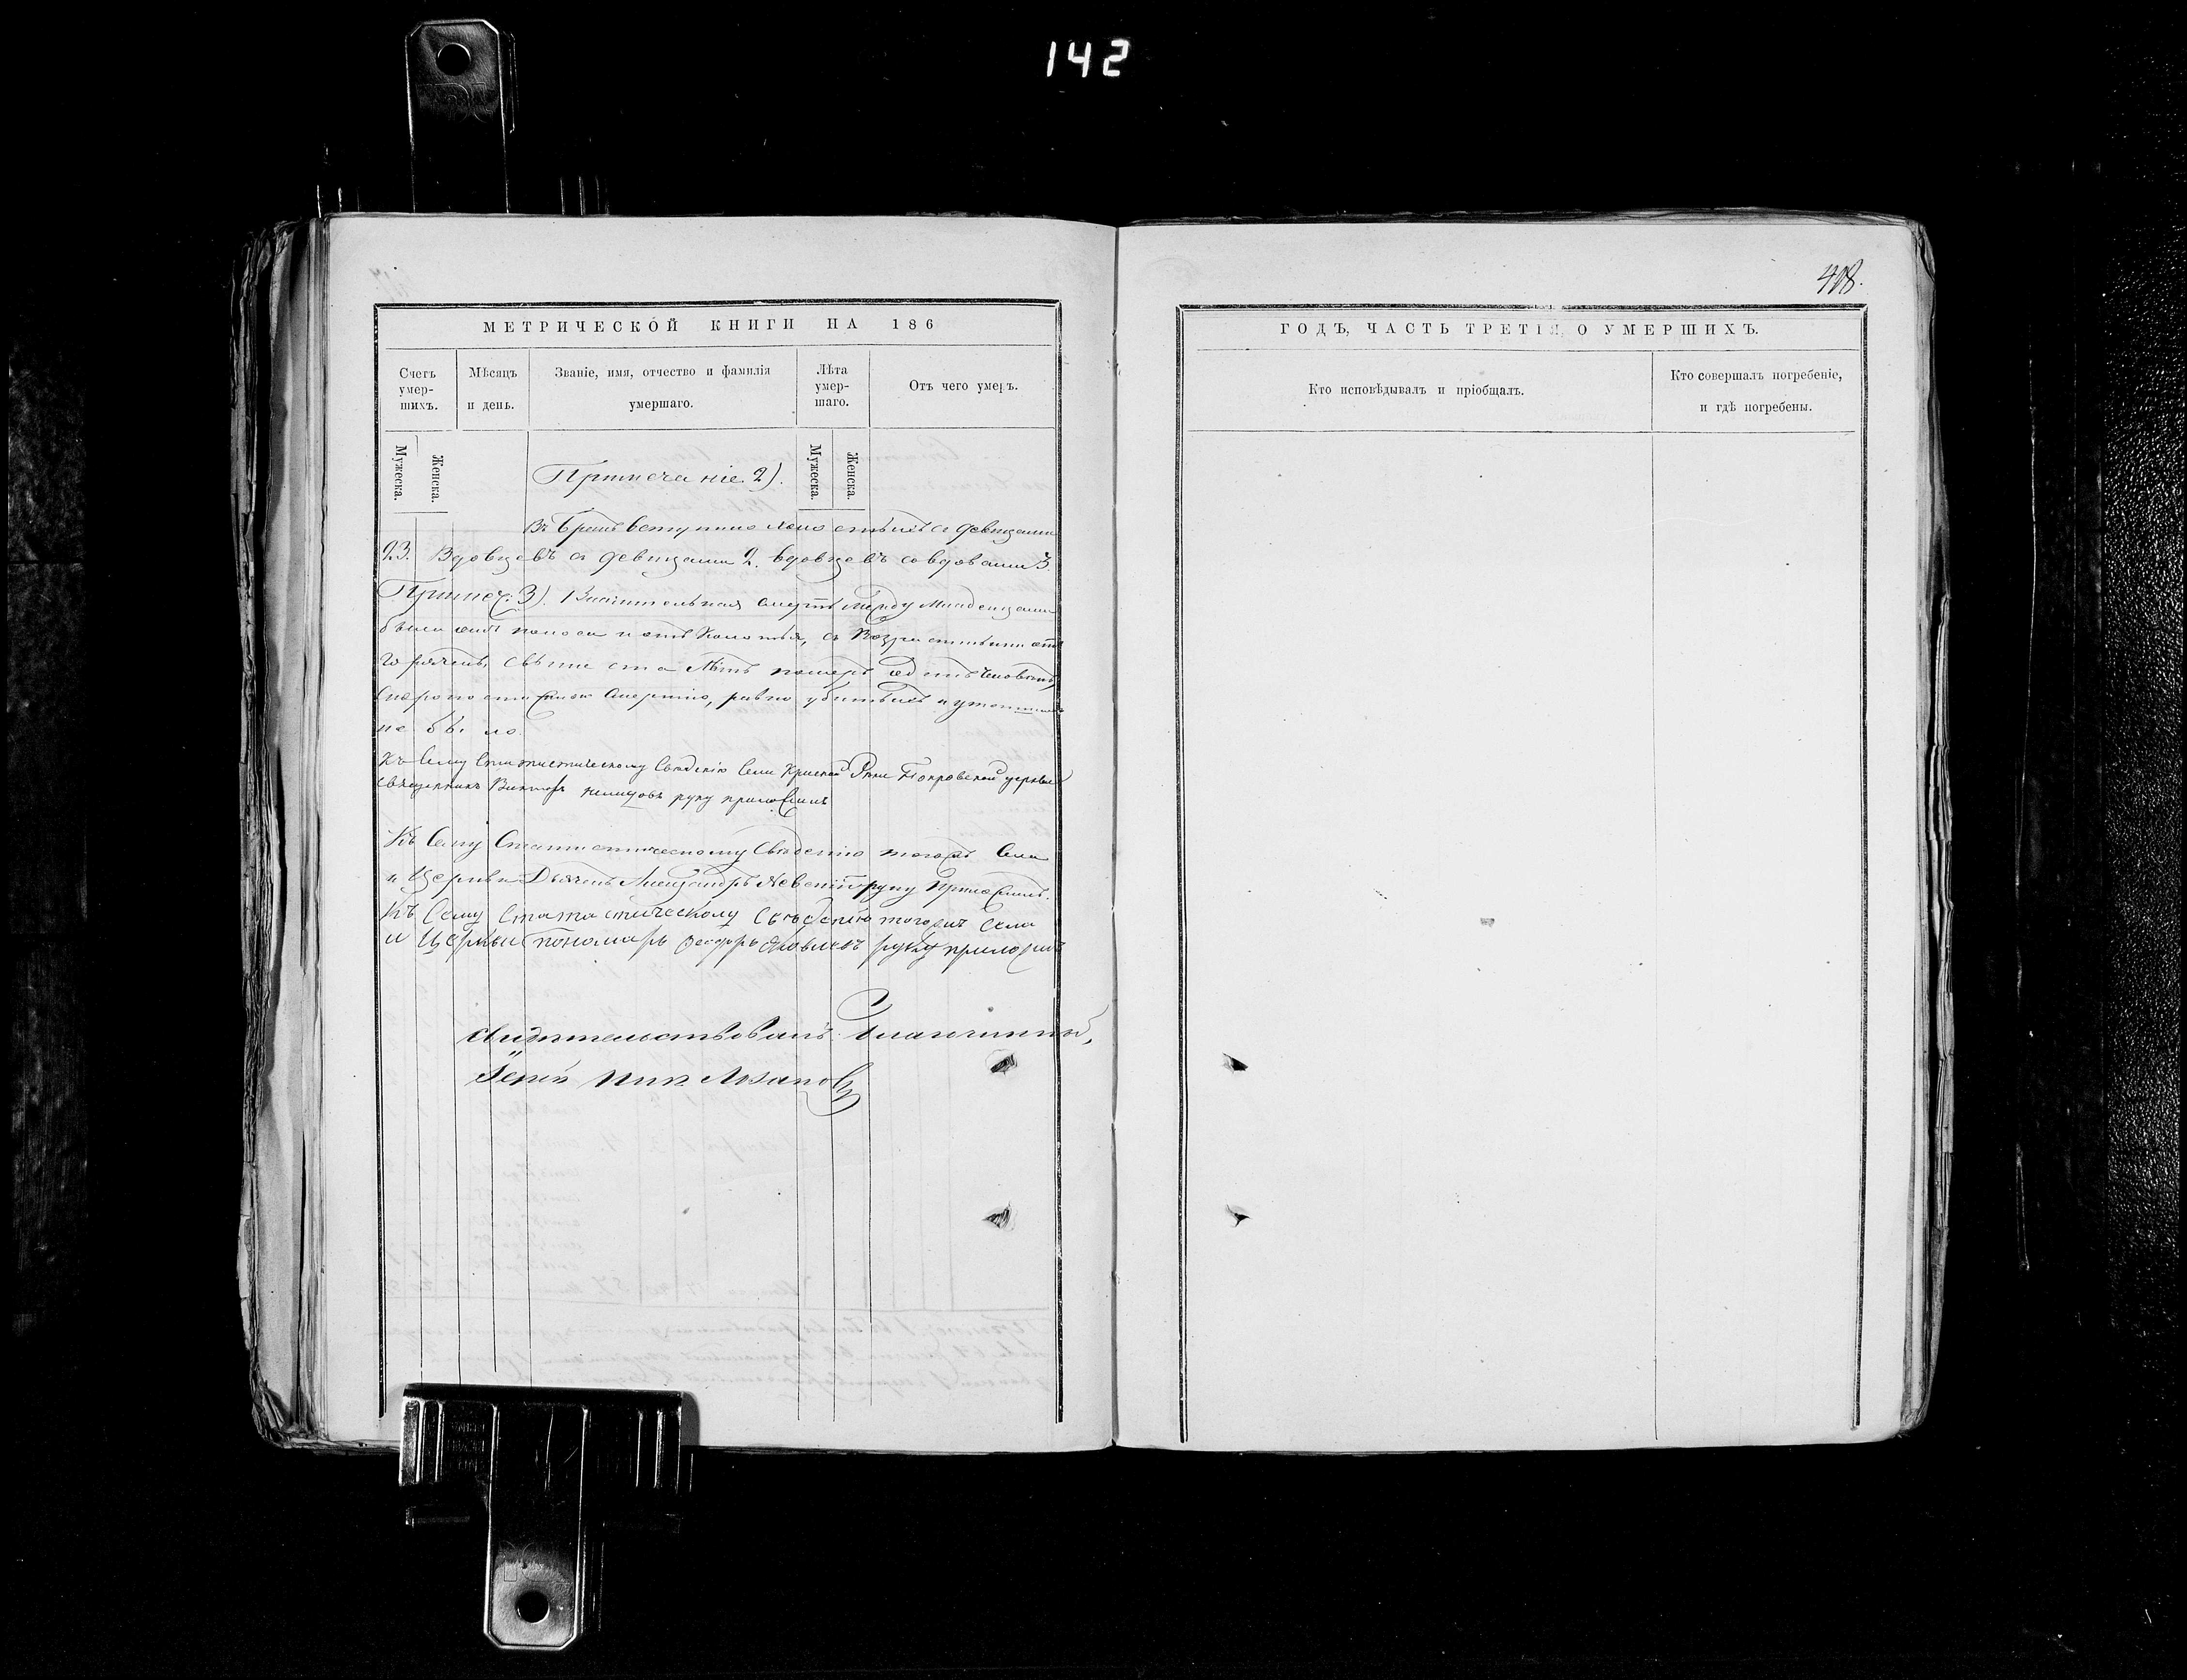 142
418.
МЕТРИЧЕСКОЙ КНИГИ НА 186
Счетъ умершихъ.
Мѣсяцъ и день.
Званіе, имя, отчество и фамилія умершаго.
Лѣта умершаго.
Отъ чего умеръ.
Мужеска.
Женска.
Мужеска.
Женска.
Примечаніе 2).
Въ бракъ вступило холостыхъ съ девицами
23. Вдовцевъ съ девицами 2. вдовцевъ со вдовами 3.
Примеч: 3). смерть между младенцами
была отъ поноса и отъ колотья, съ возрастными отъ
горячекъ, свыше ста лѣтъ померъ одинъ человѣкъ,
скоропостижною смертію, равно убитыхъ и утопшихъ
не было.
Къ сему статистическому свѣденію села Покровской церкви
священникъ Викторъ руку приложилъ
Къ сему статистическому свѣденію тогожъ села
и церкви Дьячекъ Александръ руку приложилъ.
Къ сему статистическому свѣденію тогожъ села
и церкви пономарь Ѳеодоръ Яковлевъ руку приложилъ
Свидѣтельствовалъ Благочинный,
Іерей
ГОДЪ, ЧАСТЬ ТРЕТІЯ, О УМЕРШИХЪ.
Кто исповѣдывалъ и пріобщалъ.
Кто совершалъ погребеніе, и гдѣ погребены.